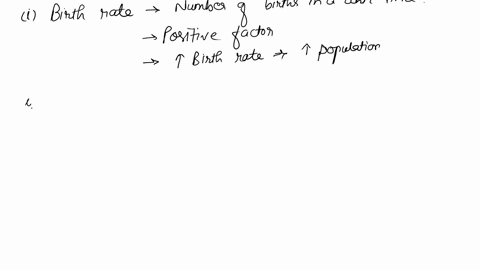 (i) Birth rate → Number of births in a
→ Positive factor
→ ↑ Birth rate → ↑ population